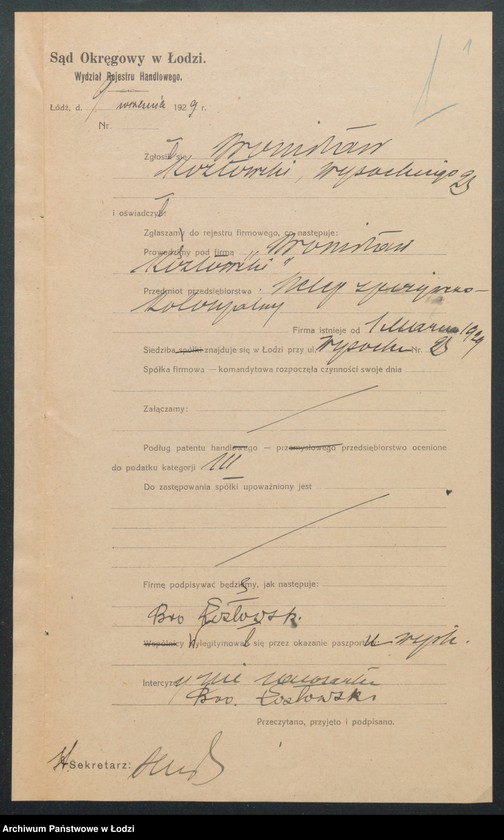 1
Sąd Okręgowy w Łodzi.
Wydział Rejestru Handlowego.
Łódź, d. września 1929 r.
Nr.
Zgłosił się Bronisław
Kozłowski, Wysockiego 23
i oświadczył:
Zgłaszam do rejestru firmowego, co następuje:
Prowadzony pod firmą „Bronisław
Kozłowski"
Przedmiot przedsiębiorstwa: sklep spożywczo-
kolonjalny
Firma istnieje od 1 Marca 1929
Siedziba spółki znajduje się w Łodzi przy ul. Wysocka Nr. 23
Spółka firmowa — komandytowa rozpoczęła czynności swoje dnia
Załączamy:
Podług patentu handlowego — przemysłowego przedsiębiorstwo ocenione
do podatku kategorji III
Do zastępowania spółki upoważniony jest
Firmę podpisywać będziemy, jak następuje:
Bro Kozłowsk.
Wspólnicy Wylegitymował się przez okazanie paszportu
Intercyzy nie zawarłem
Bro. Kozłowski
Przeczytano, przyjęto i podpisano.
Sekretarz:
Archiwum Państwowe w Łodzi